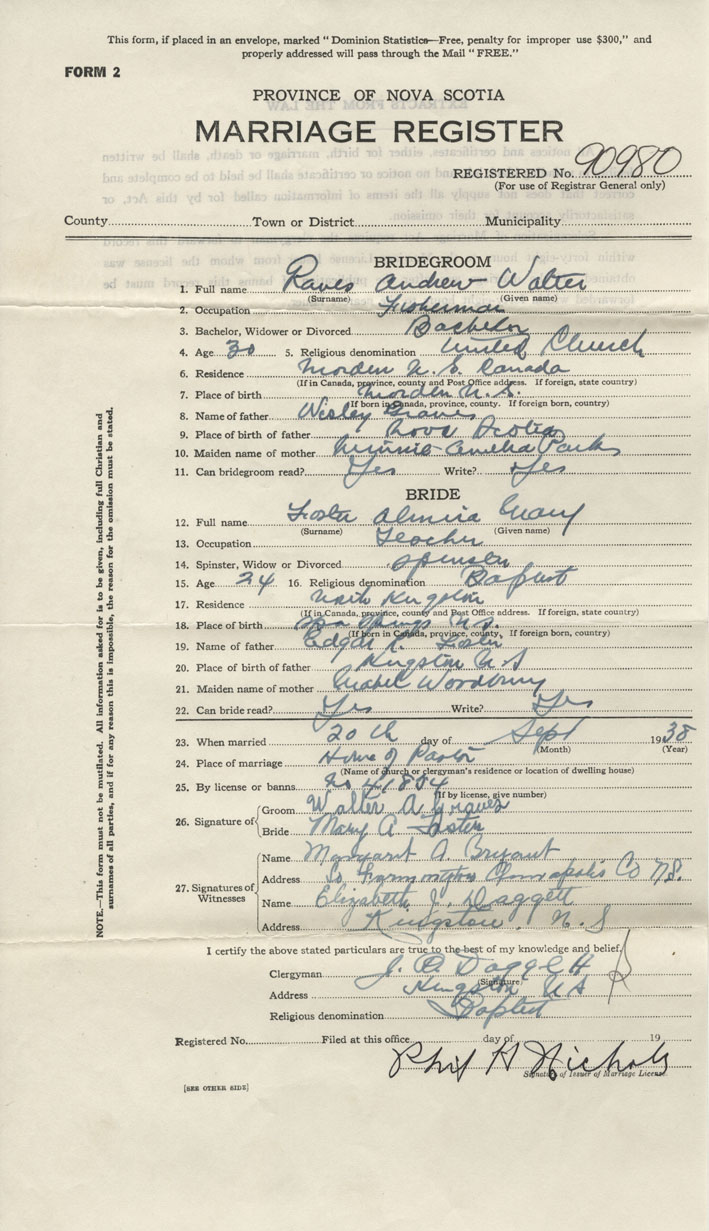 This form, if placed in an envelope, marked "Dominion Statistics—Free, penalty for improper use $300," and
properly addressed will pass through the Mail "FREE."
FORM 2
PROVINCE OF NOVA SCOTIA
MARRIAGE REGISTER
REGISTERED No. 90980
(For use of Registrar General only)
County Town or District Municipality
BRIDEGROOM
1. Full name Raves Andrew Walter
(Surname) (Given name)
2. Occupation Fisherman
3. Bachelor, Widower or Divorced Bachelor
4. Age 30 5. Religious denomination United Church
6. Residence Morden N.S. Canada
(If in Canada, province, county and Post Office address. If foreign, state country)
7. Place of birth Morden N.S.
(If born in Canada, province, county. If foreign born, country)
8. Name of father Wisley Graves
9. Place of father Nova Scotia
10. Maiden name of mother Minnie Amelia Parks
11. Can bridegroom read? Yes Write? Yes
BRIDE
12. Full name Foster Almira Mary
(Surname) (Given name)
13. Occupation Teacher
14. Spinster, Widow or Divorced Spinster
15. Age 24 16. Religious denomination Baptist
17. Residence North Kingston
(If in Canada, province, county and Post Office address. If foreign, state country)
18. Place of birth Spa Springs N.S.
(If born in Canada, province, county, If foreign born, country)
19. Name of father Edgar R. Foster
20. Place of birth of father Kingston N S
21. Maiden name of mother Mabel Woodbury
22. Can bride read? Yes Write? Yes
23. When married 20th day of Sept 1938
(Month) (Year)
24. Place of marriage Home of Pastor
(Name of church or clergyman's residence or location of dwelling house)
25. By license or banns No 41804
(If by license, give number)
26. Signature of Groom Walter A Graves
Bride Mary A Foster
27. Signatures of Witnesses
Name Margaret A Bryant
Address So Farmington Annapolis Co N.S.
Name Elizabeth J. Daggett
Address Kingston, N.S
I certify the above stated particulars are true to the best of my knowledge and belief.
Clergyman J. D. Daggett
(Signature)
Address Kingston N S
Religious denomination Baptist
Registered No. Filed at this office day of 19
Phil H Nichols
Signature of Issuer of Marriage License.
[SEE OTHER SIDE]
NOTE.—This form must not be mutilated. All information asked for is to be given, including full Christian and
surnames of all parties, and if for any reason this is impossible, the reason for the omission must be stated.